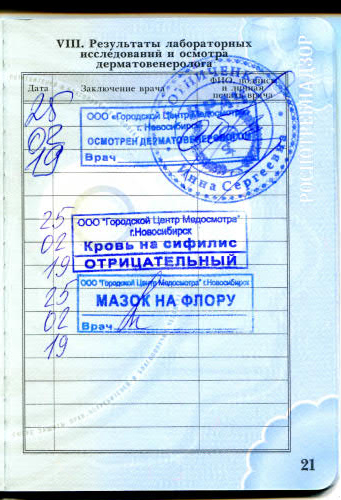 VIII. Результаты лабораторных
исследований и осмотра
дерматовенеролога
Дата
Заключение врача
ФИО, подпись
и личная
печать врача
25
02
19
ООО «Городской Центр Медосмотра»
г. Новосибирск
ОСМОТРЕН ДЕРМАТОВЕНЕРОЛОГОМ
Врач
ВРАЧ
Инна Сергеевна
РОСПОТРЕБНАДЗОР
25
02
19
ООО "Городской Центр Медосмотра"
г.Новосибирск
Кровь на сифилис
ОТРИЦАТЕЛЬНЫЙ
25
02
19
ООО "Городской Центр Медосмотра" г.Новосибирск
МАЗОК НА ФЛОРУ
Врач
21